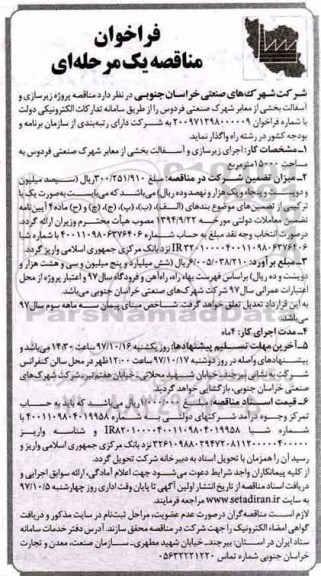 فراخوان
مناقصه یک مرحله‌ای
شرکت شهرک‌های صنعتی خراسان جنوبی در نظر دارد مناقصه پروژه زیرسازی و
آسفالت بخشی از معابر شهرک صنعتی فردوس را از طریق سامانه تدارکات الکترونیکی دولت
با شماره فراخوان ۲۰۰۹۷۱۲۹۸۰۰۰۰۰۹ به شرکت دارای رتبه‌بندی از سازمان برنامه و
بودجه کشور در رشته راه واگذار نماید.
۱ـ مشخصات کار: اجرای زیرسازی و آسفالت بخشی از معابر شهرک صنعتی فردوس به
مساحت ۱۵۰۰۰ مترمربع
۲ـ میزان تضمین شرکت در مناقصه: مبلغ ۳۰۰/۲۵۱/۹۱۰ ریال (سیصد میلیون
و دویست و پنجاه و یک هزار و نهصد و ده ریال) می‌باشد که می‌بایست به صورت یک یا
ترکیبی از تضمین‌های موضوع بندهای (الف)، (ب)، (پ)، (ج)، (چ)، و (ح) ماده ۴ آیین‌نامه
تضمین معاملات دولتی مورخه ۱۳۹۴/۹/۲۲ مصوب هیأت محترم وزیران ارائه گردد.
درصورت انتخاب وجه نقد مبلغ به حساب شماره ۴۰۰۱۱۰۹۸۰۶۳۷۶۲۰۶ با شماره شبا
نزد بانک مرکزی جمهوری اسلامی واریز گردد.
۳ـ مبلغ برآورد: ۶/۰۰۵/۰۳۸/۲۱۰ ریال (شش میلیارد و پنج میلیون و سی و هشت هزار و
دویست و ده ریال) براساس فهرست بهاء راه، راه‌آهن و فرودگاه سال ۹۷ و اعتبار پروژه از محل
اعتبارات عمرانی سال ۹۷ شرکت شهرک‌های صنعتی خراسان جنوبی می‌باشد.
به این قرارداد تعدیل تعلق خواهد گرفت. شاخص مبنای پیمان سه ماهه سوم سال ۹۷
می‌باشد.
۴ـ مدت اجرای کار: ۴ ماه
۵ـ آخرین مهلت تسلیم پیشنهادها: روز یکشنبه ۹۷/۱۰/۱۶ ساعت ۱۴:۳۰ می‌باشد و
پیشنهادهای واصله در روز دوشنبه ۹۷/۱۰/۱۷ ساعت ۱۲:۰۰ ظهر در محل سالن کنفرانس
شرکت به نشانی بیرجند، خیابان شهید محلاتی، خیابان هفتم غربی، شرکت شهرک‌های
صنعتی خراسان جنوبی، بازگشایی خواهد گردید.
۶ـ قیمت اسناد مناقصه: ریال می‌باشد که باید به حساب
تمرکز وجوه درآمد شرکتهای دولتی به شماره ۴۰۰۱۱۰۹۸۰۴۰۱۹۹۵۸ با
شماره شبا و شناسه واریز
نزد بانک مرکزی جمهوری اسلامی واریز و
رسید آن را همزمان با تحویل اسناد به دبیرخانه شرکت تحویل گردد.
از کلیه پیمانکاران واجد شرایط دعوت می‌شود جهت اعلام آمادگی، ارائه سوابق اجرایی و
دریافت اسناد مناقصه از تاریخ انتشار اولین آگهی تا پایان وقت اداری روز چهارشنبه ۹۷/۱۰/۵
به سایت www.setadiran.ir مراجعه فرمایند.
لازم است مناقصه‌گران درصورت عدم عضویت، مراحل ثبت‌نام در سایت مذکور و دریافت
گواهی امضاء الکترونیک را جهت شرکت در مناقصه محقق سازند. آدرس دفتر خدمات سامانه
ستاد ایران در استان: بیرجند، خیابان شهید مطهری، سازمان صنعت، معدن و تجارت
خراسان جنوبی شماره تماس ۰۵۶۳۲۲۲۱۲۲۰